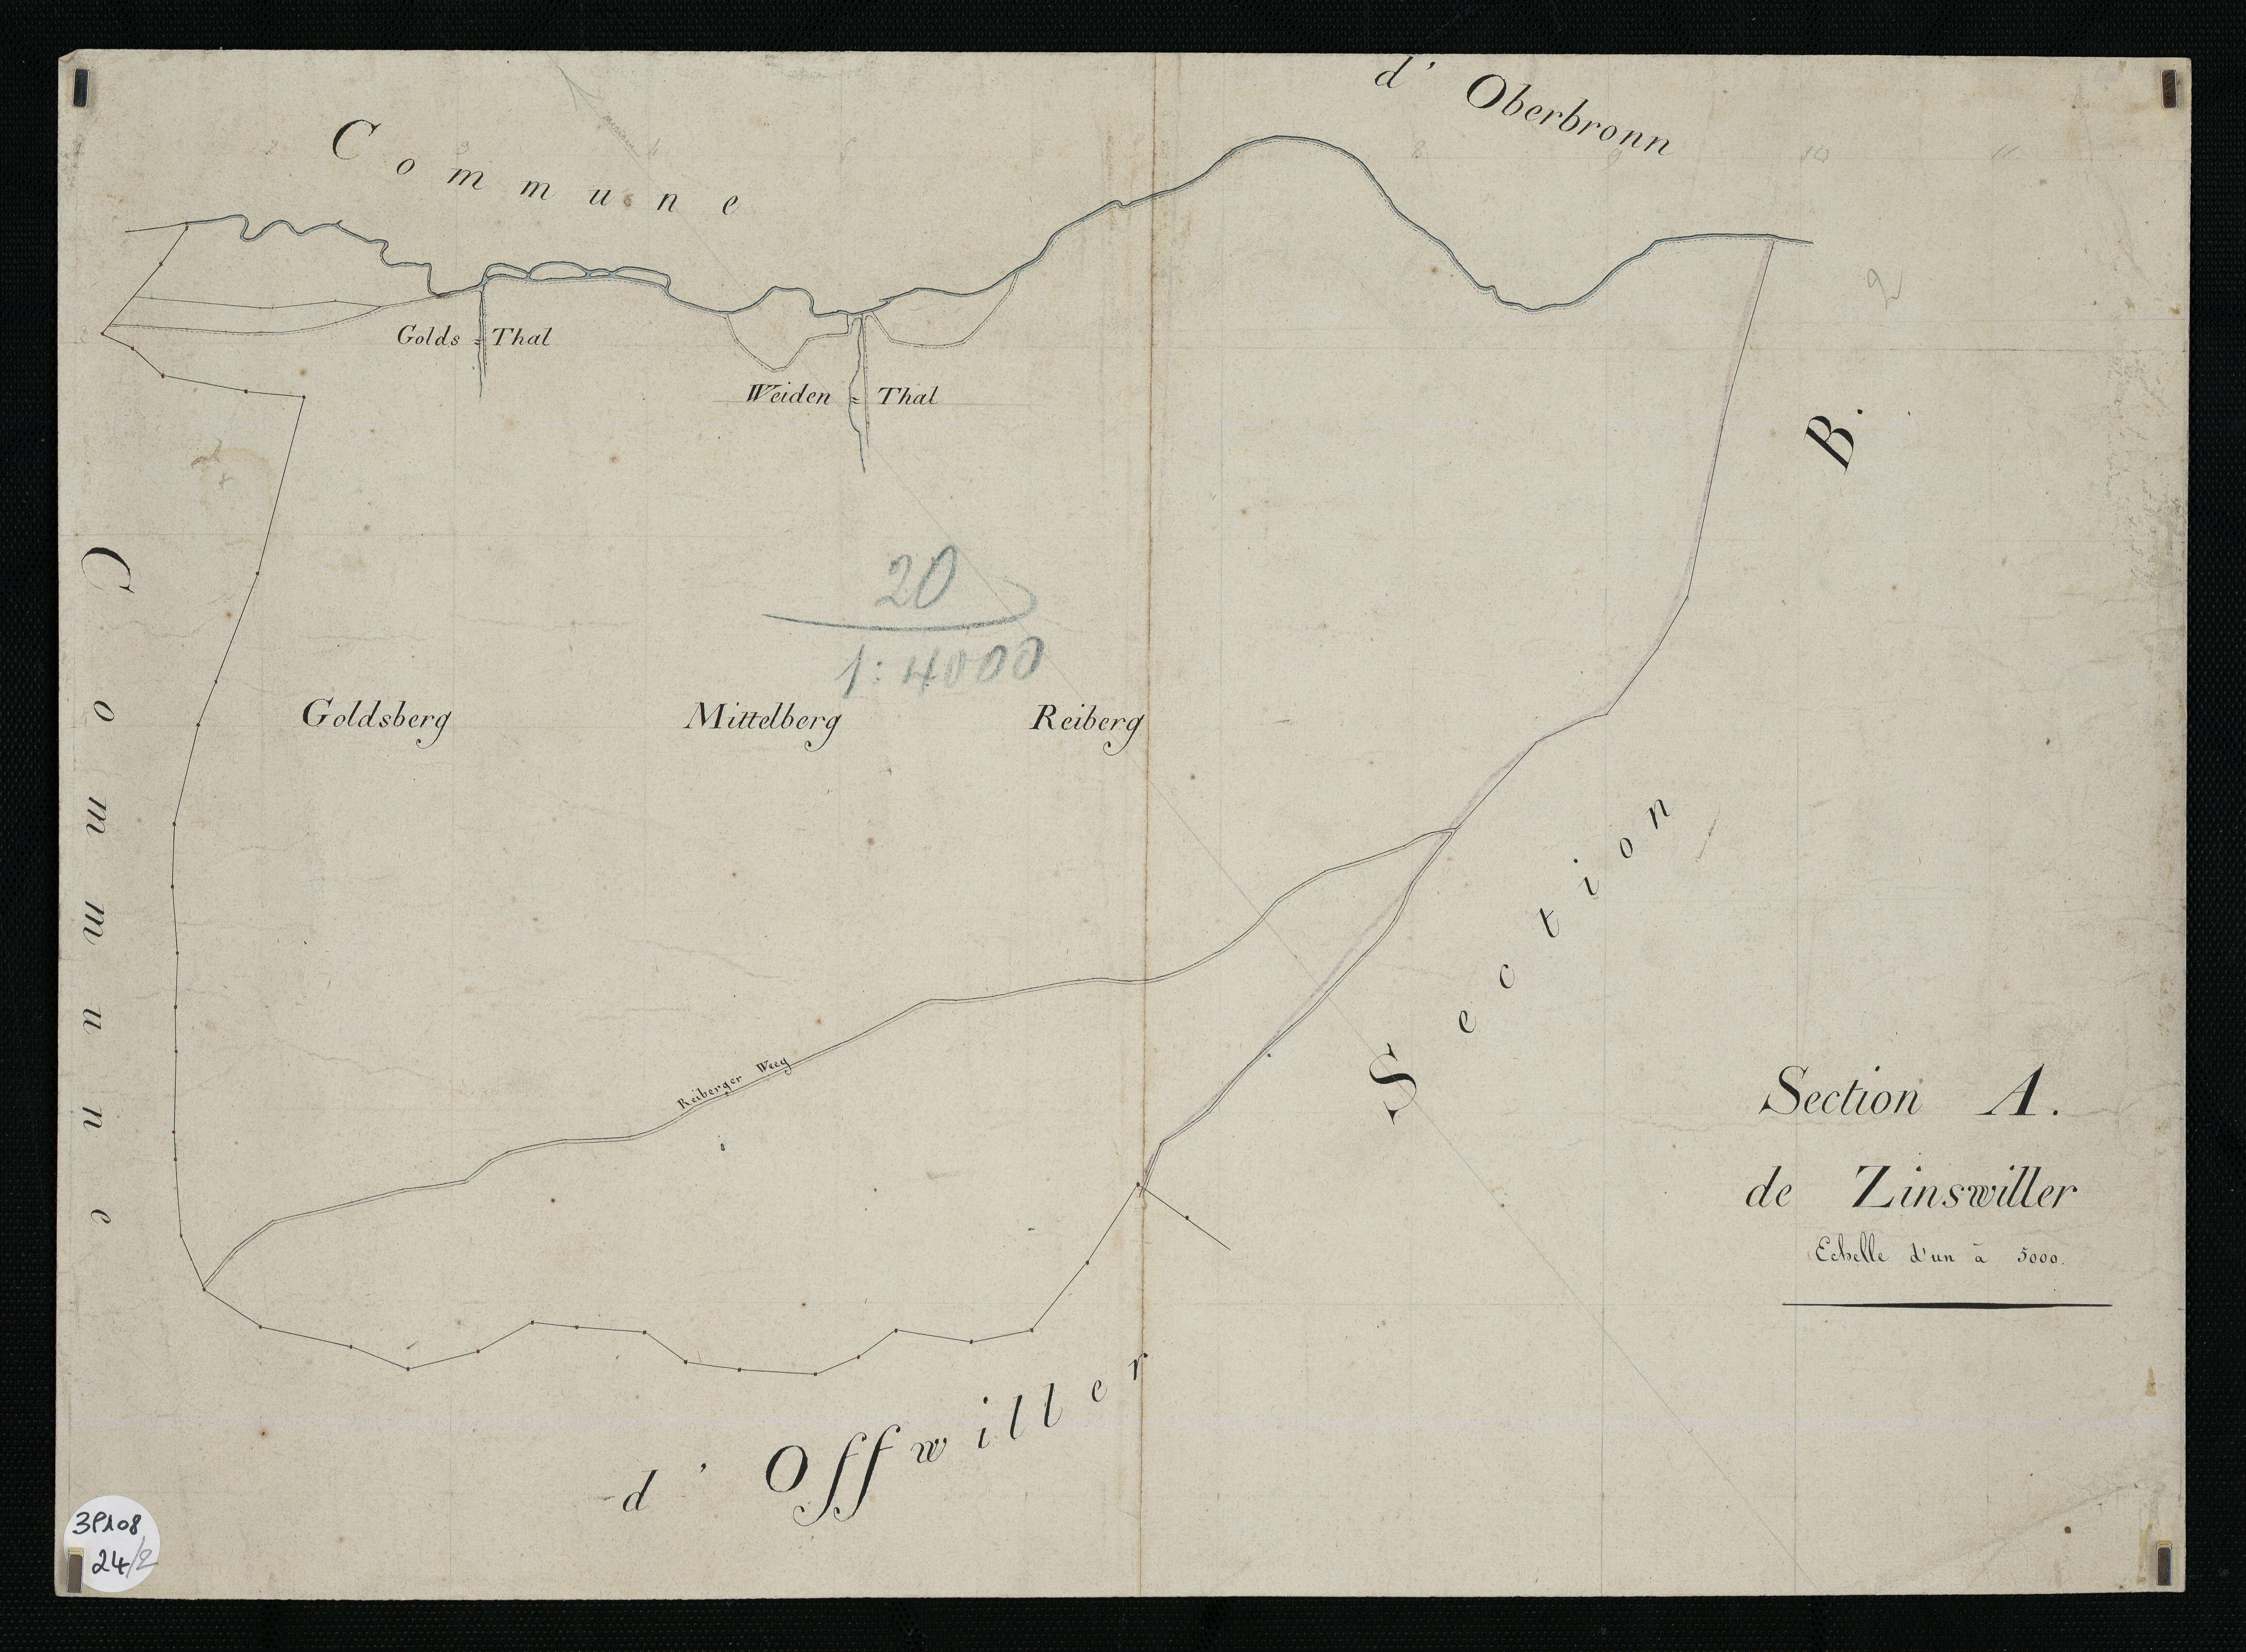 Commune d' Oberbronn
2 3 4 5 6 8 9 10 11
2
Golds = Thal
Weiden = Thal
B.
20
1:4000
Goldsberg Mittelberg Reiberg
Commune
Section
Reiberger Weeg
Section A.
de Zinswiller
Echelle d'un à 5000.
d' Offwiller
3P108
24/2